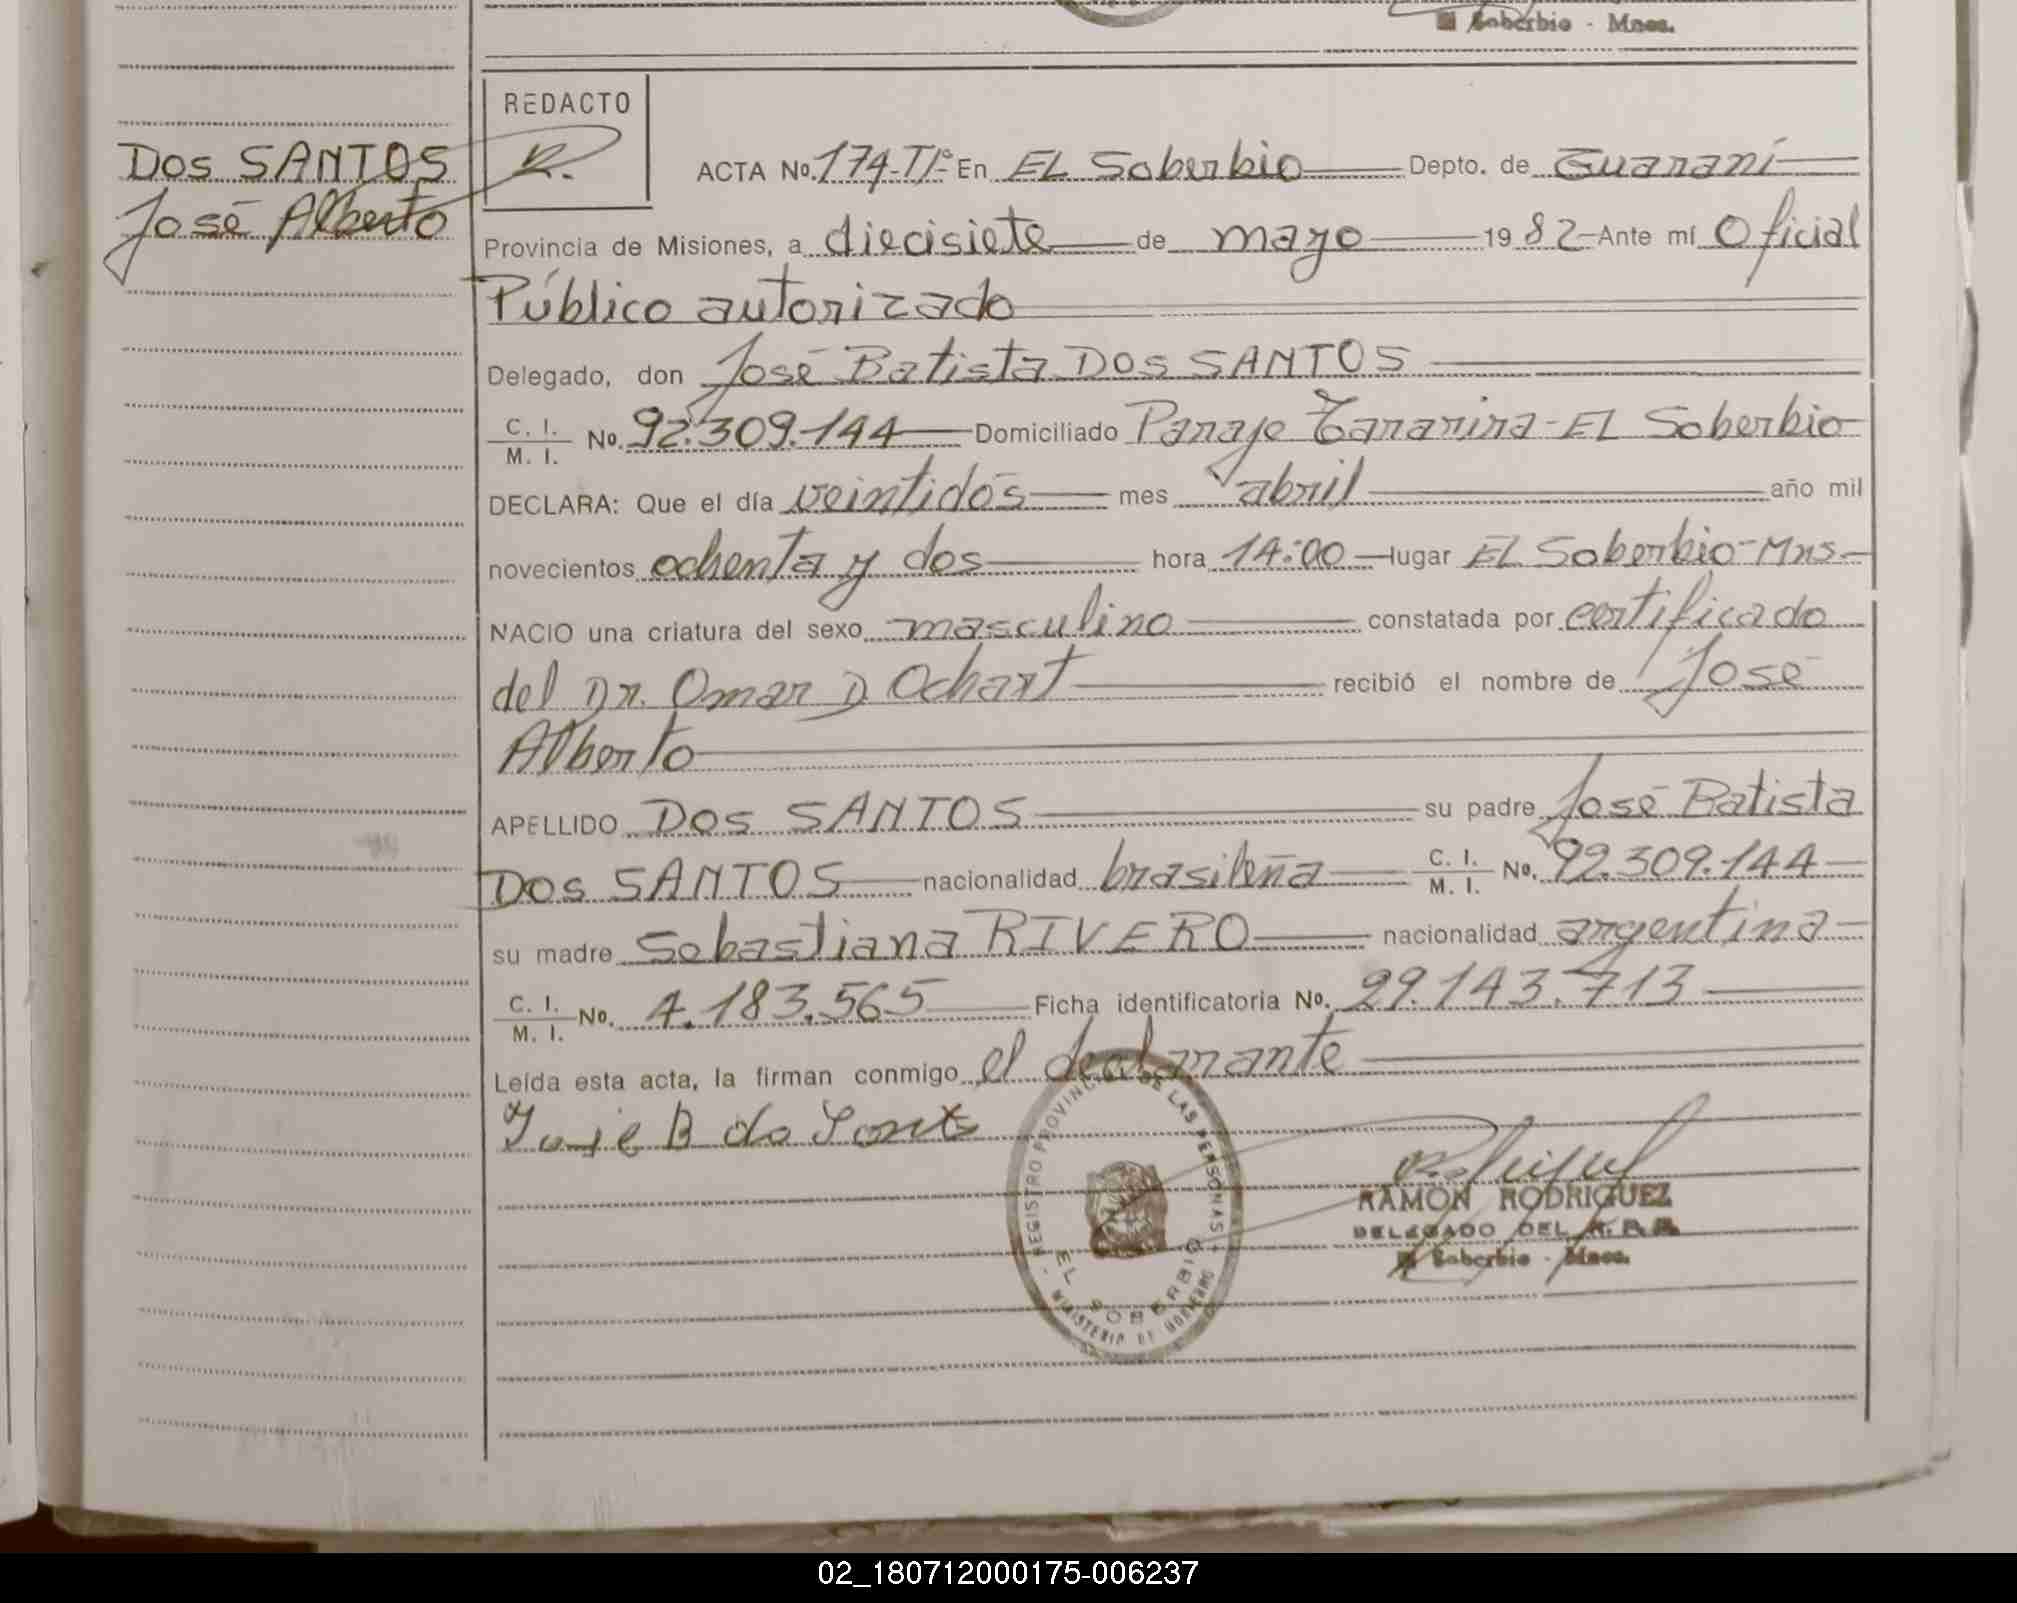 Soberbio - Mnes.
REDACTO
R.
DOS SANTOS
José Alberto
ACTA No. 174-Tº I- En EL Soberbio Depto. de Guaraní
Provincia de Misiones, a diecisiete de mayo 1982 Ante mí Oficial
Público autorizado
Delegado, don José Batista DOS SANTOS
C. I.
M. I. No. 92.309.144 Domiciliado Paraje Tararira - EL Soberbio
DECLARA: Que el día veintidós mes abril año mil
novecientos ochenta y dos hora 14:00 lugar EL Soberbio - Mns -
NACIO una criatura del sexo masculino constatada por certificado
del Dr. Omar D Ochart recibió el nombre de José
Alberto
APELLIDO DOS SANTOS su padre José Batista
DOS SANTOS nacionalidad brasileña C. I. M. I. No. 92.309.144
su madre Sebastiana RIVERO nacionalidad argentina
C. I. M. I. No. 4.183.565 Ficha identificatoria No. 29.143.713
Leída esta acta, la firman conmigo el declarante
REGISTRO PROVINCIAL DE LAS PERSONAS
EL SOBERBIO
MINISTERIO DE GOBIERNO
RAMON RODRIGUEZ
DELEGADO DEL R. P. P.
El Soberbio - Mnes.
02_180712000175-006237